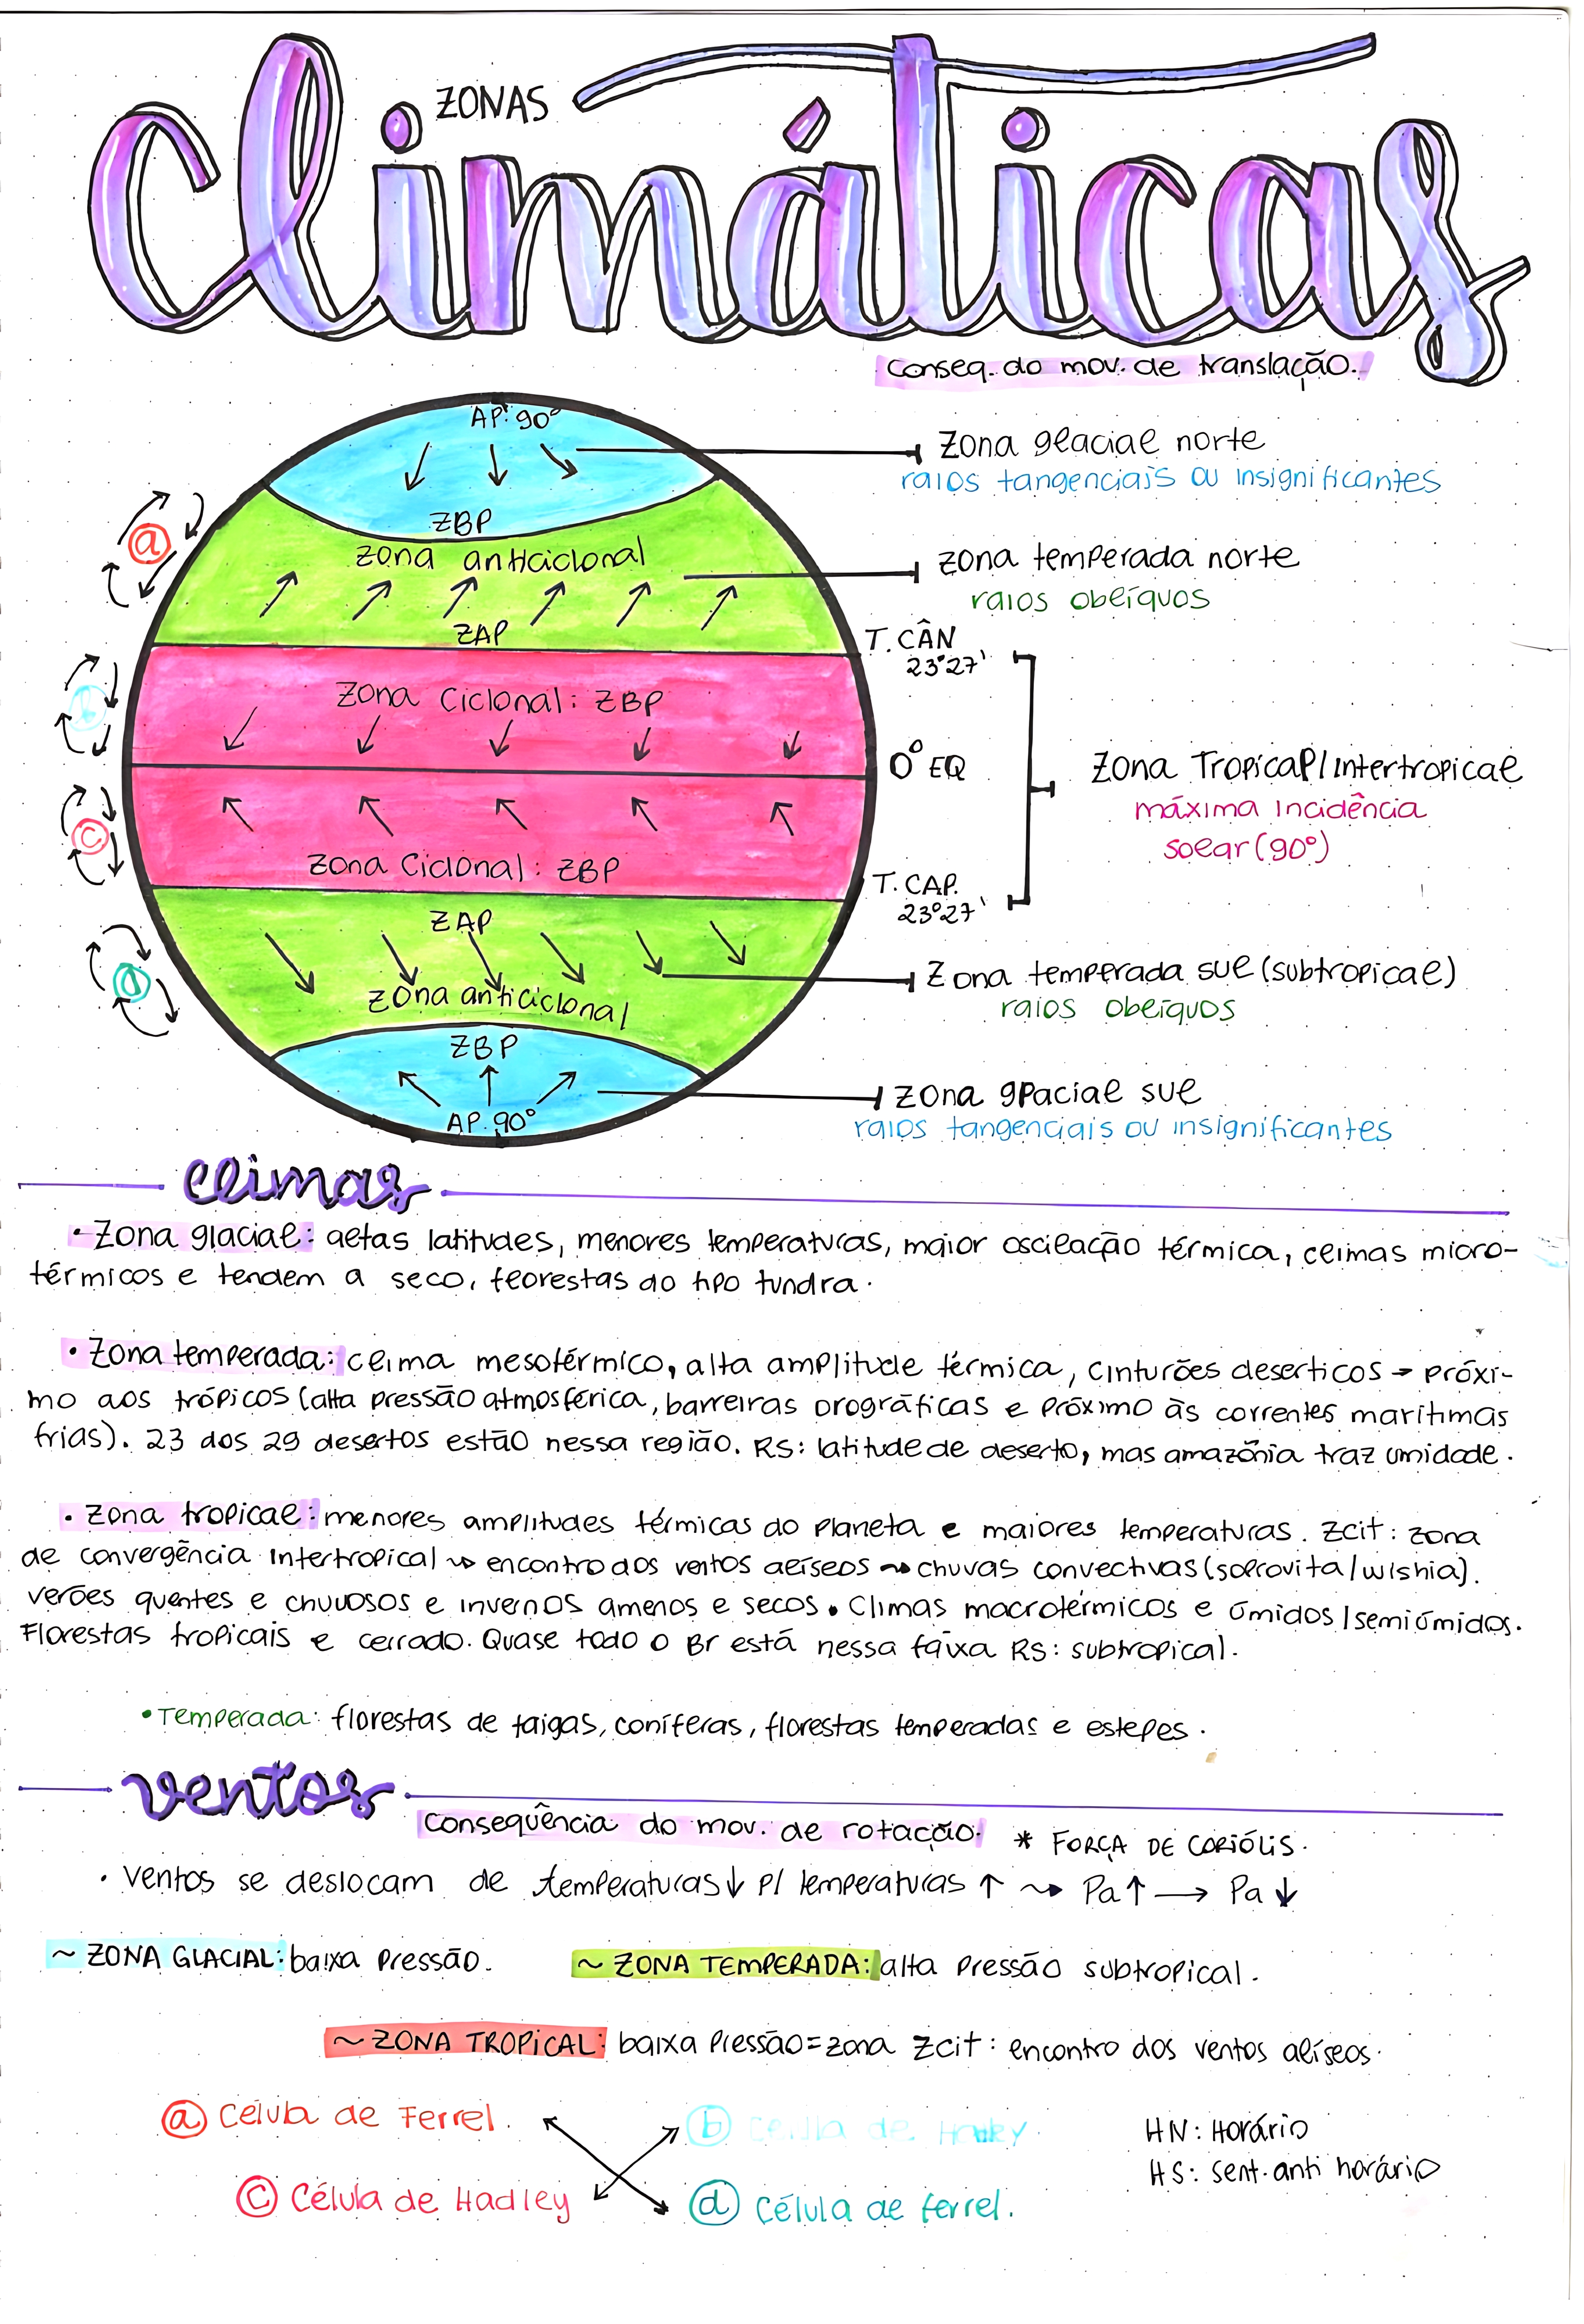 ZONAS
Climáticas
conseq. do mov. de translação.
AP. 90°
zona glacial norte
raios tangenciais ou insignificantes
ZBP
a
zona anticiclonal
zona temperada norte
raios oblíquos
ZAP
T. CÂN
23°27'
b
zona ciclonal: ZBP
0° EQ
zona Tropical/intertropical
máxima incidência
solar (90°)
c
zona ciclonal: ZBP
T. CAP.
23°27'
ZAP
d
zona temperada sul (subtropical)
raios oblíquos
zona anticiclonal
ZBP
zona glacial sul
raios tangenciais ou insignificantes
AP. 90°
climas
• zona glacial: altas latitudes, menores temperaturas, maior oscilação térmica, climas micro-
térmicos e tendem a seco, florestas do tipo tundra.
• zona temperada: clima mesotérmico, alta amplitude térmica, cinturões deserticos → próxi-
mo aos trópicos (alta pressão atmosférica, barreiras orográficas e próximo às correntes marítimas
frias). 23 dos 29 desertos estão nessa região. RS: latitude de deserto, mas amazônia traz umidade.
• zona tropical: menores amplitudes térmicas do planeta e maiores temperaturas. zcit: zona
de convergência intertropical ↝ encontro dos ventos alíseos ↝ chuvas convectivas (soprovita/wishia).
verões quentes e chuvosos e invernos amenos e secos. Climas macrotérmicos e úmidos/semiúmidos.
Florestas tropicais e cerrado. Quase todo o Br está nessa faixa RS: subtropical.
• Temperada: florestas de taigas, coníferas, florestas temperadas e estepes.
ventos
consequência do mov. de rotação. * FORÇA DE CORIÓLIS.
• ventos se deslocam de temperaturas ↓ p/ temperaturas ↑ ↝ Pa ↑ → Pa ↓
~ ZONA GLACIAL: baixa pressão. ~ ZONA TEMPERADA: alta pressão subtropical.
~ ZONA TROPICAL: baixa pressão = zona zcit: encontro dos ventos alíseos.
a Célula de Ferrel. b Célula de Hadley. HN: Horário
c Célula de Hadley d Célula de ferrel. HS: sent. anti horário